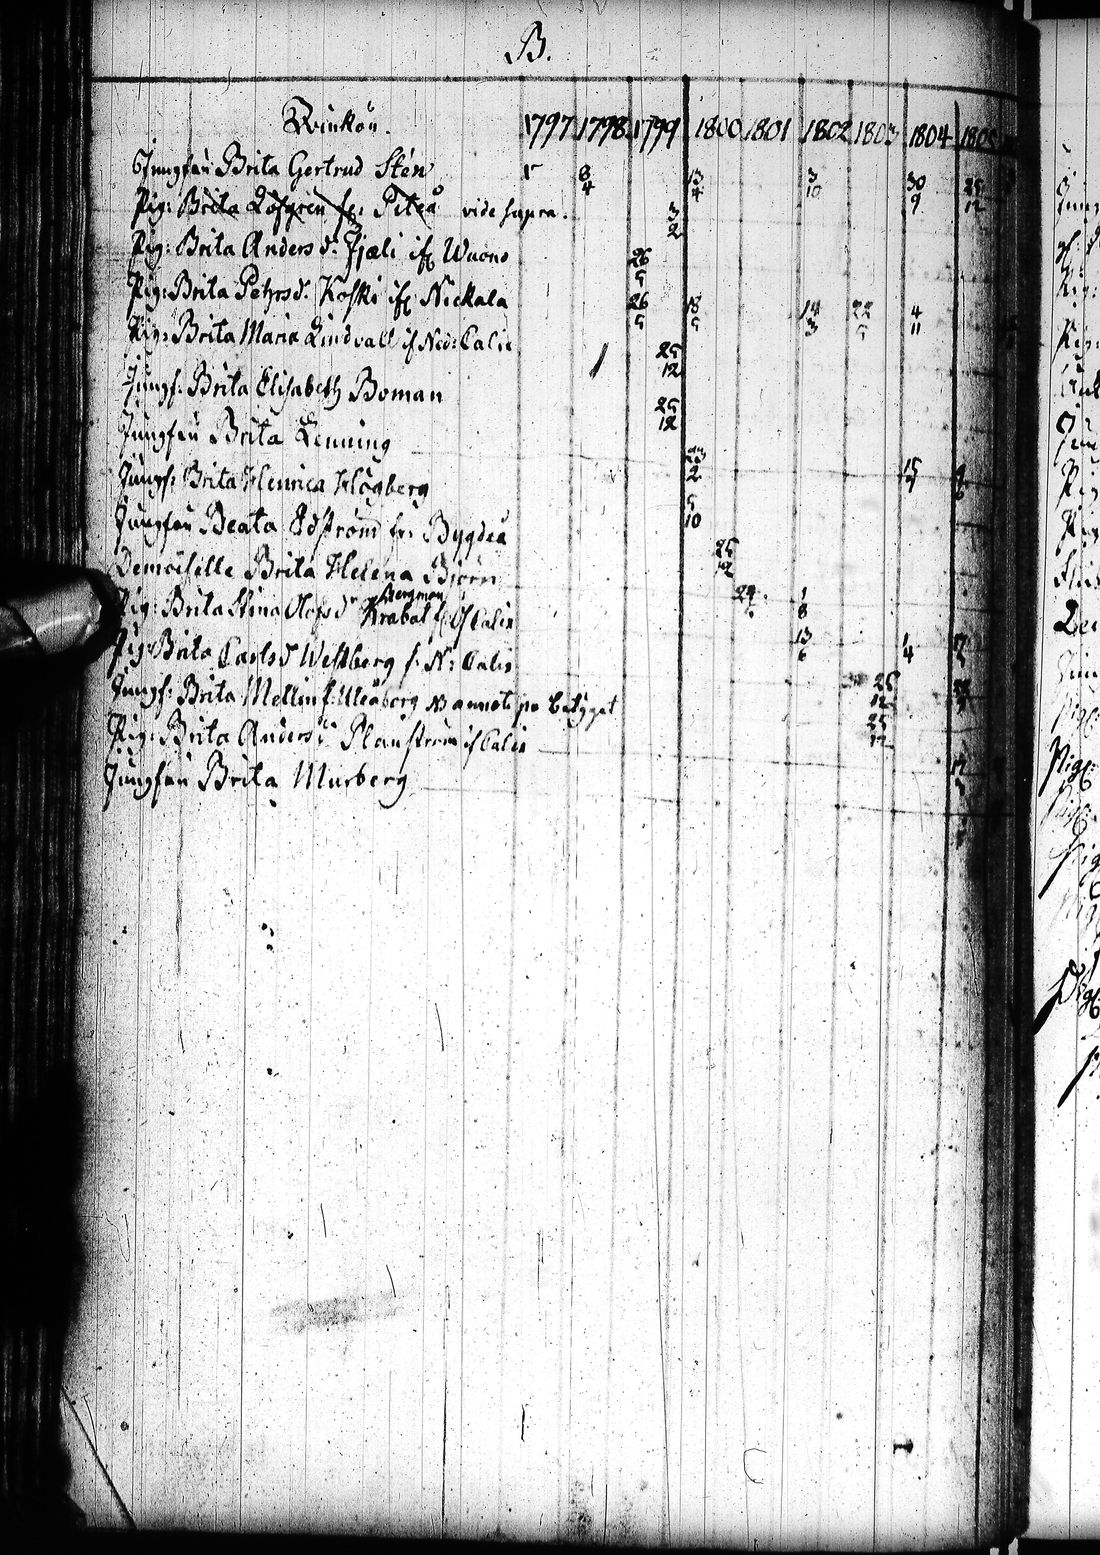 B.
Qvinkön. 1797 1798 1799 1800 1801 1802 1803 1804 1805
Jungfru Brita Gertrud Stén 8/4 13/4 3/10 30/9 25/12
Pig: Brita Löfgren fr: Piteå vide supra. 3/2
Pig: Brita Anders d. Fjæli 26/5
Pig: Brita Pehrsd. Koski Nickala 26/5 18/5 14/3 22/5 4/11
Pig: Brita Maria Lindvall if Ned: Calix 25/12
Jungf: Brita Elisabeth Boman 25/12
Jungfru Brita Lenning 23/2
Jungf: Brita Henrica Högberg 5/10
Jungfru Beata Edström fr: Bygdeå 25/12
Demoiselle Brita Helena Björn 24
Bergman
Pig: Brita Stina Olofsd Krabat Calix 1/8
Pig: Brita Carlsd Westberg f. N: Calix 13/6 1/4
Jungf: Brita Mellin f: Uleåborg annot: betyget 25/12
Pig: Brita Andersd. Planström if Calix 25/12
Jungfru Brita Murberg